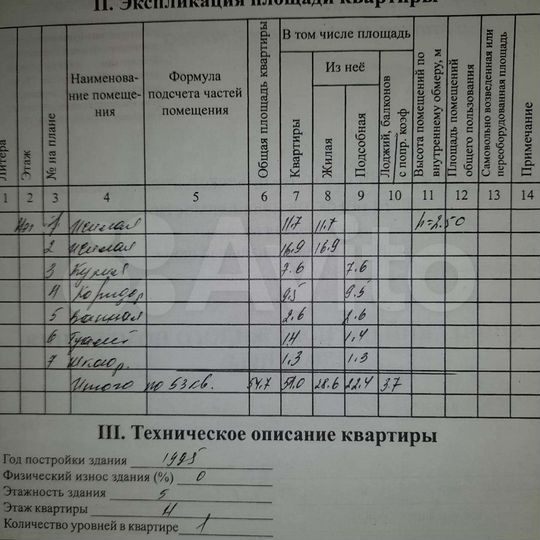 II. Экспликация площади квартиры
Литера
Этаж
№ на плане
Наименова-
ние помеще-
ния
Формула
подсчета частей
помещения
Общая площадь квартиры
В том числе площадь
Квартиры
Из неё
Жилая
Подсобная
Лоджий, балконов
с попр. коэф
Высота помещений по
внутреннему обмеру, м
Площадь помещений
общего пользования
Самовольно возведенная или
переоборудованная площадь
Примечание
1 2 3 4 5 6 7 8 9 10 11 12 13 14
1 жилая 11.7 11.7 h=2.50
2 жилая 16.9 16.9
3 Кухня 7.6 7.6
4 Коридор 9.5 9.5
5 Ванная 2.6 2.6
6 Туалет 1.4 1.4
7 шкаф. 1.3 1.3
Итого по 53 кв. 54.7 51.0 28.6 22.4 3.7
Avito
III. Техническое описание квартиры
Год постройки здания 1995
Физический износ здания (%) 0
Этажность здания 5
Этаж квартиры 4
Количество уровней в квартире 1